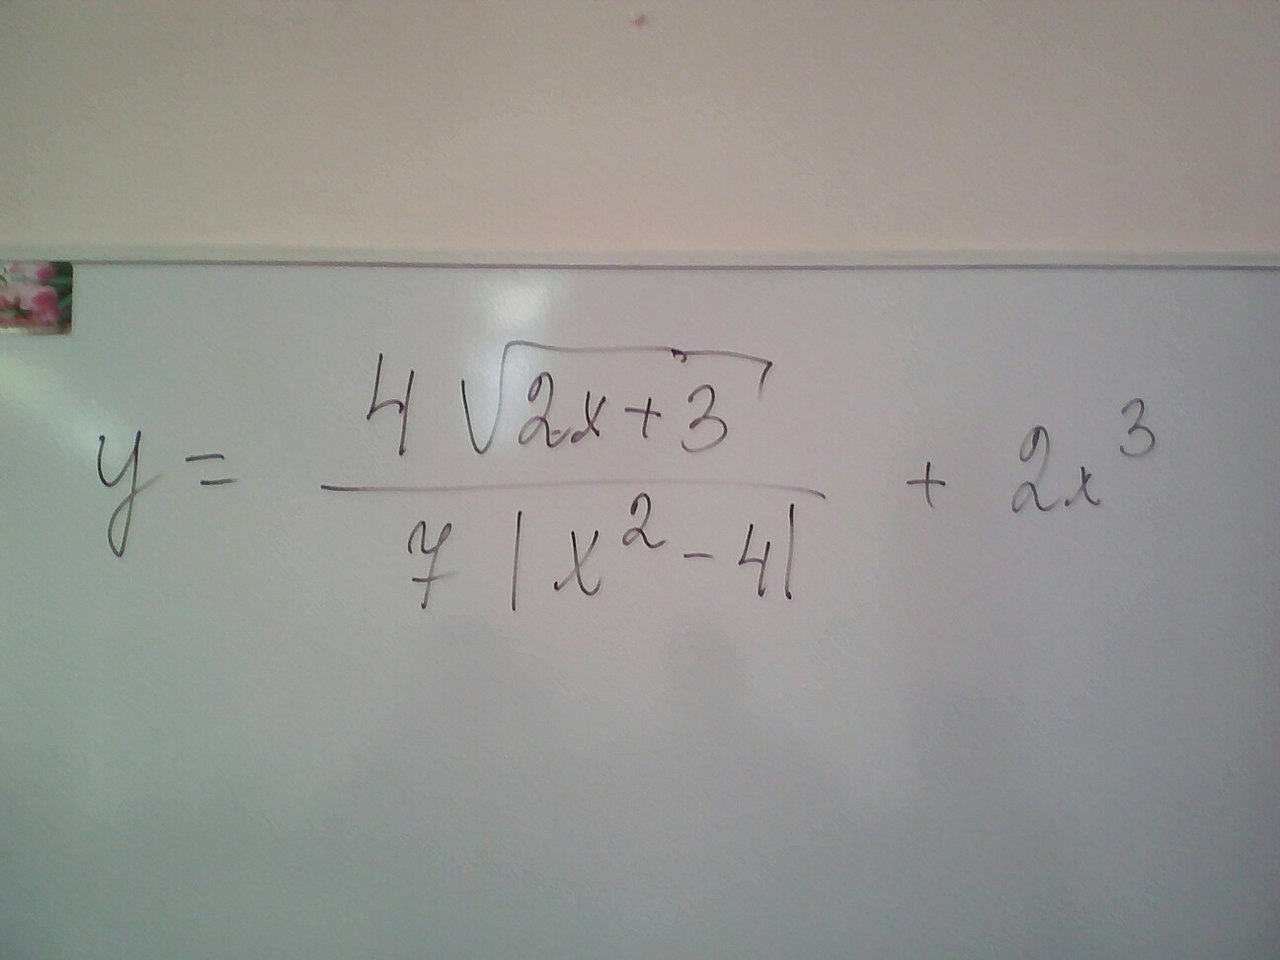 y = \frac{4 \sqrt{2x+3}}{7 |x^2 - 4|} + 2x^3